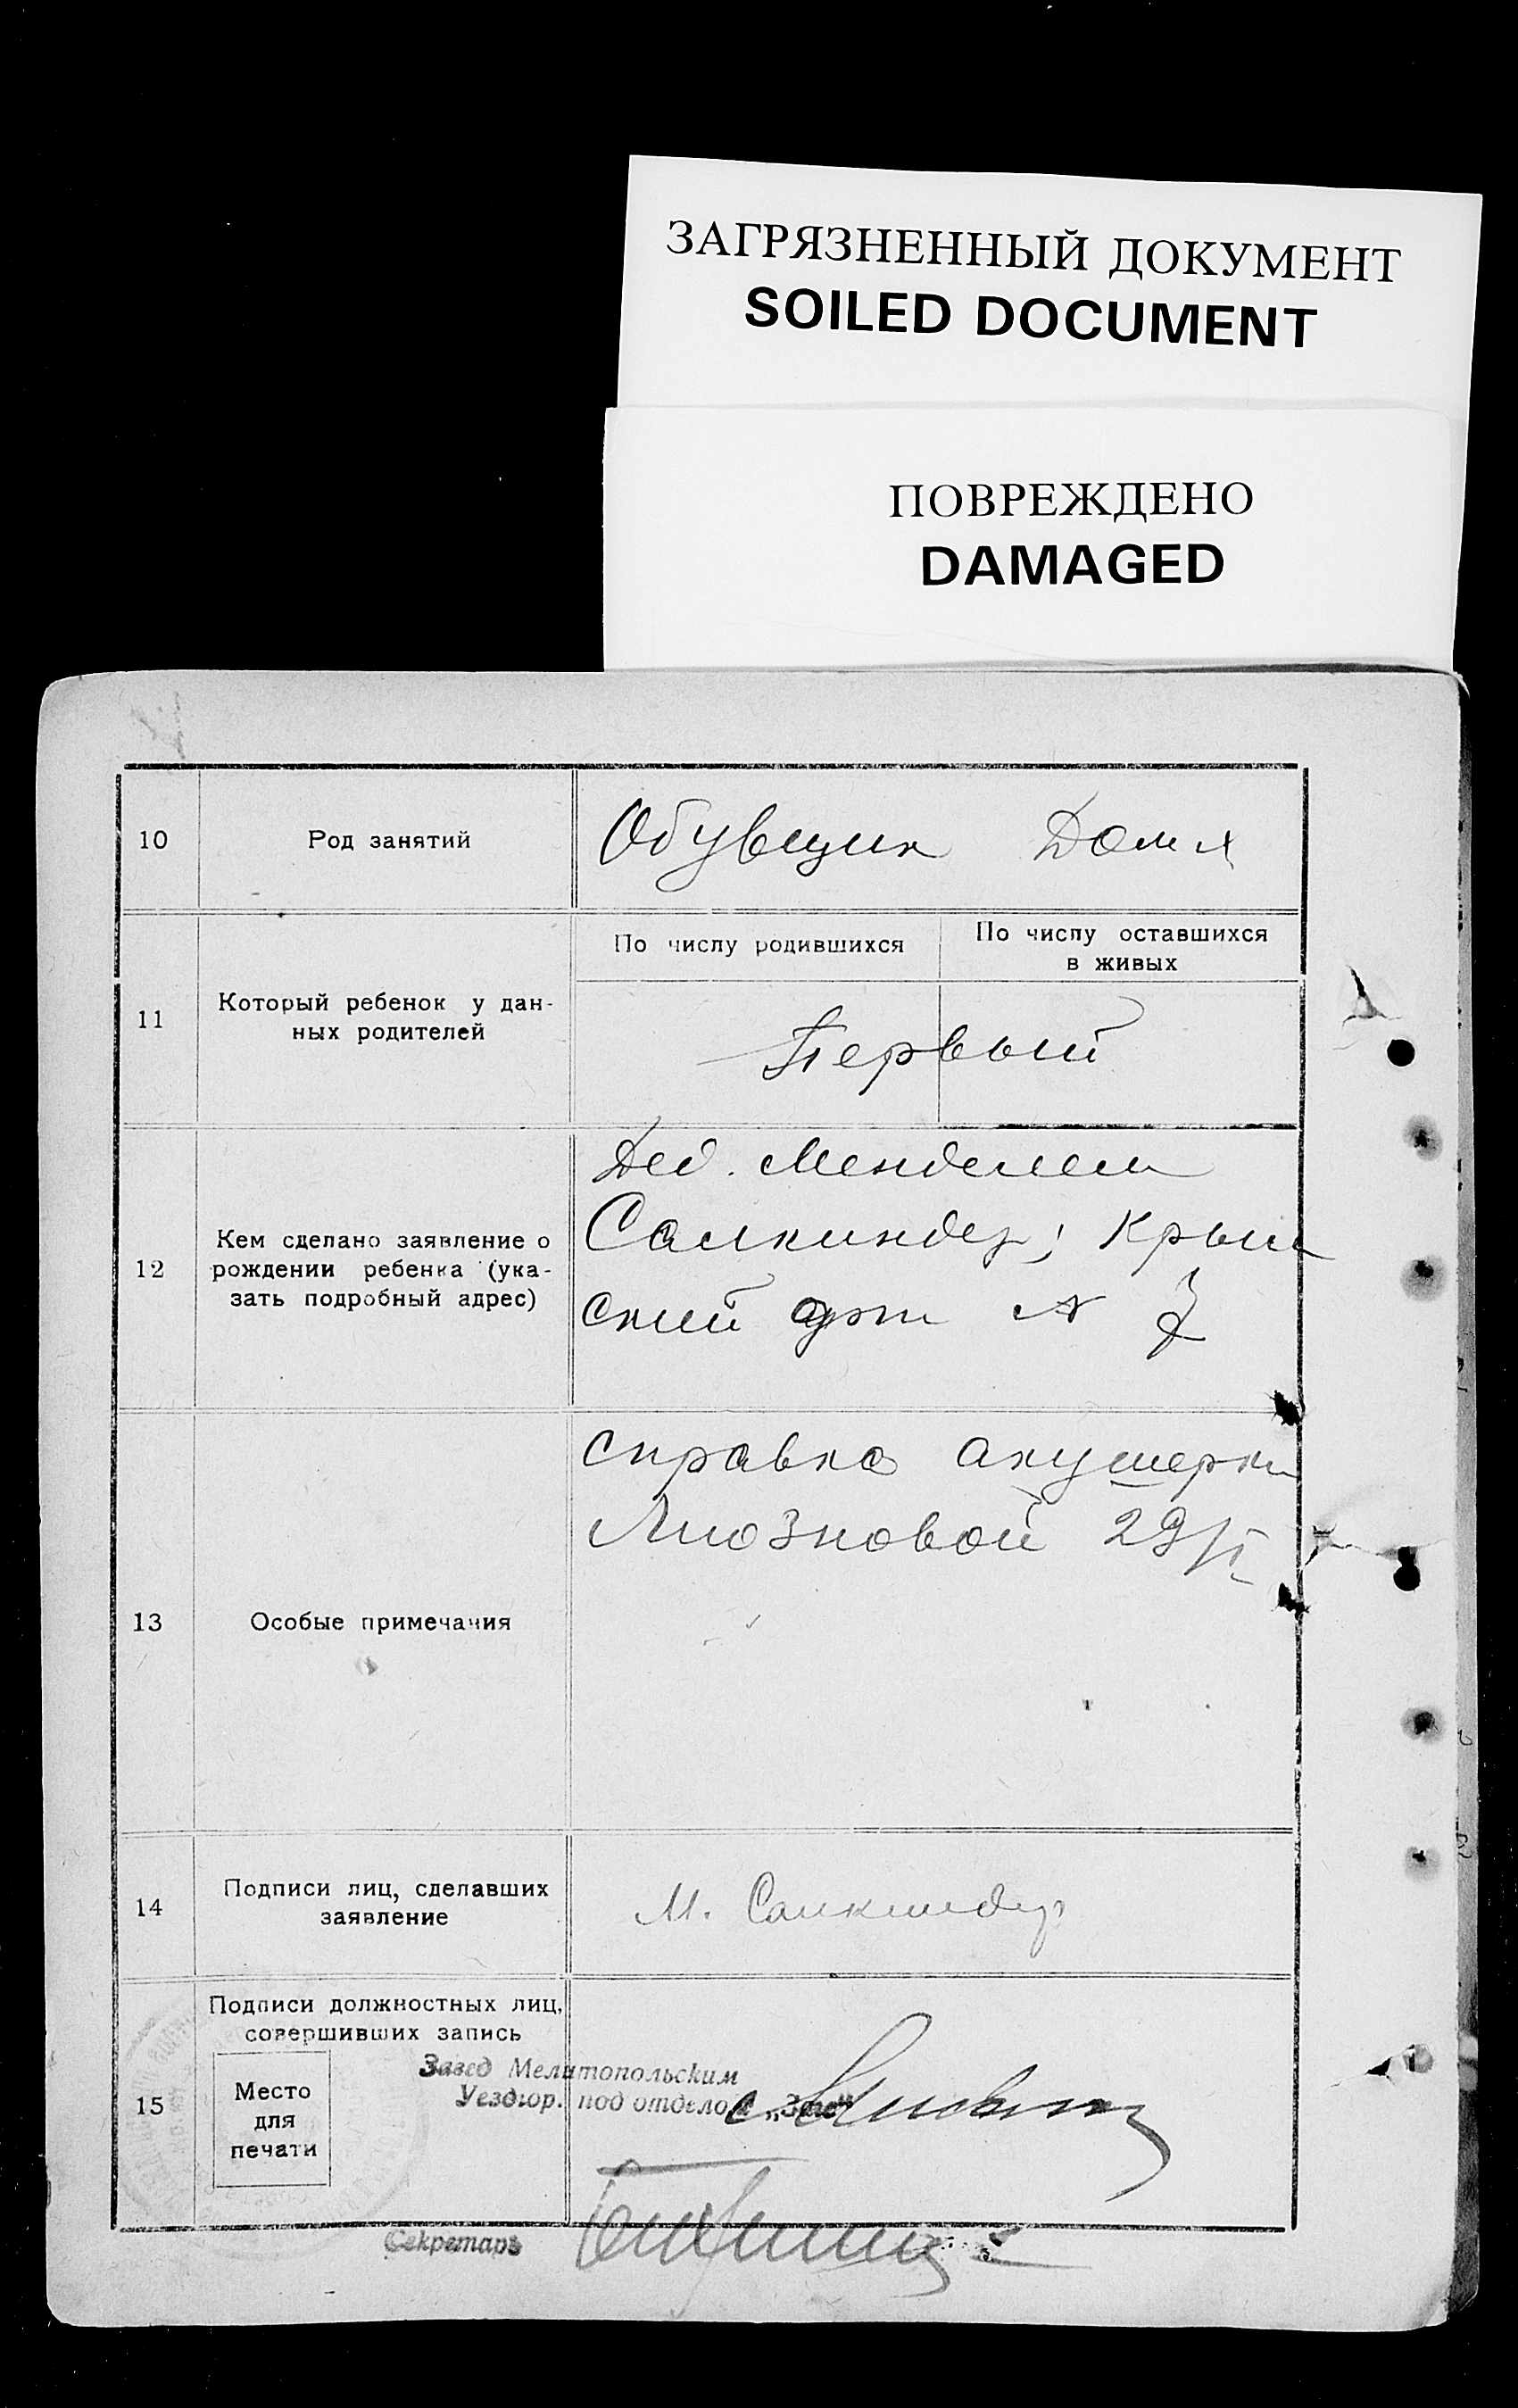 ЗАГРЯЗНЕННЫЙ ДОКУМЕНТ
SOILED DOCUMENT
ПОВРЕЖДЕНО
DAMAGED
10 Род занятий Обувщик Дом х
11 Который ребенок у дан-
ных родителей
По числу родившихся
По числу оставшихся
в живых
Первый
12 Кем сделано заявление о
рождении ребенка (ука-
зать подробный адрес)
Дед. Менделем
Салкиндер; Крым
ский
13 Особые примечания
справка акушерки
Лиозновой 29/
14 Подписи лиц, сделавших
заявление
М. Салкиндер
15 Подписи должностных лиц,
совершивших запись
Место
для
печати
Завед Мелитопольским
Уездгор. под отделом „Загс"
Секретарь